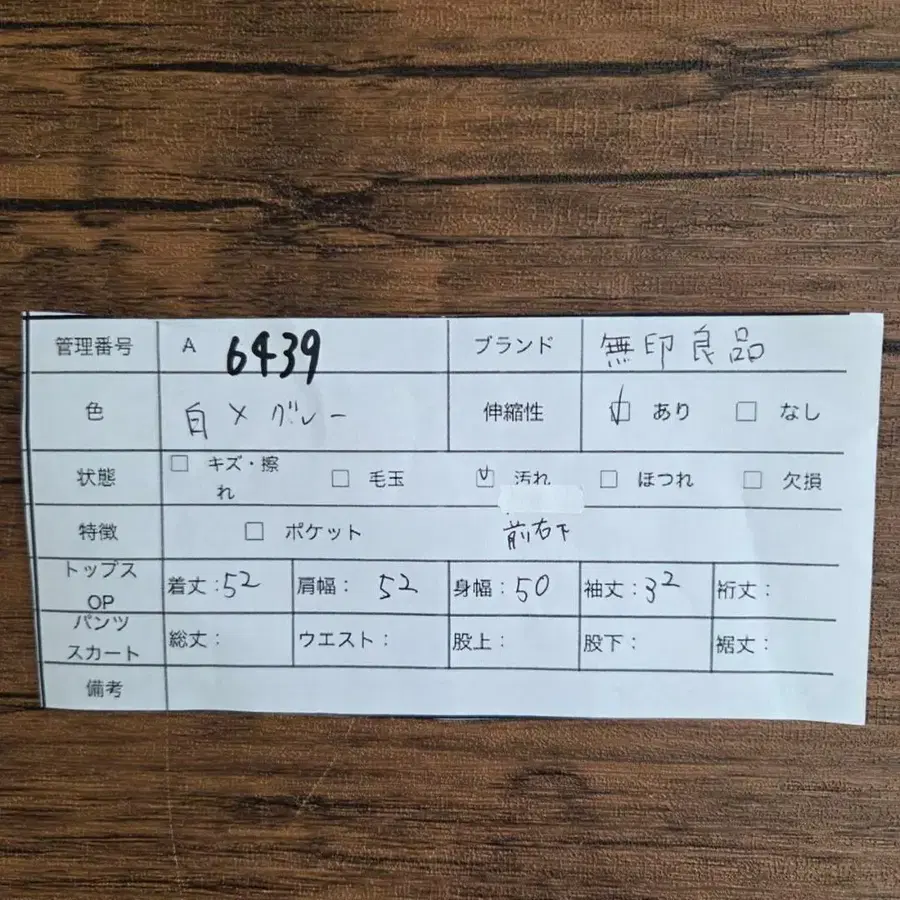 管理番号 A 6439 ブランド 無印良品
色 白×グレー 伸縮性 ☑ あり ☐ なし
状態 ☐ キズ・擦れ ☐ 毛玉 ☑ 汚れ ☐ ほつれ ☐ 欠損
特徴 ☐ ポケット 前右下
トップス OP 着丈:52 肩幅: 52 身幅:50 袖丈:32 裄丈:
パンツ スカート 総丈: ウエスト: 股上: 股下: 裾丈:
備考